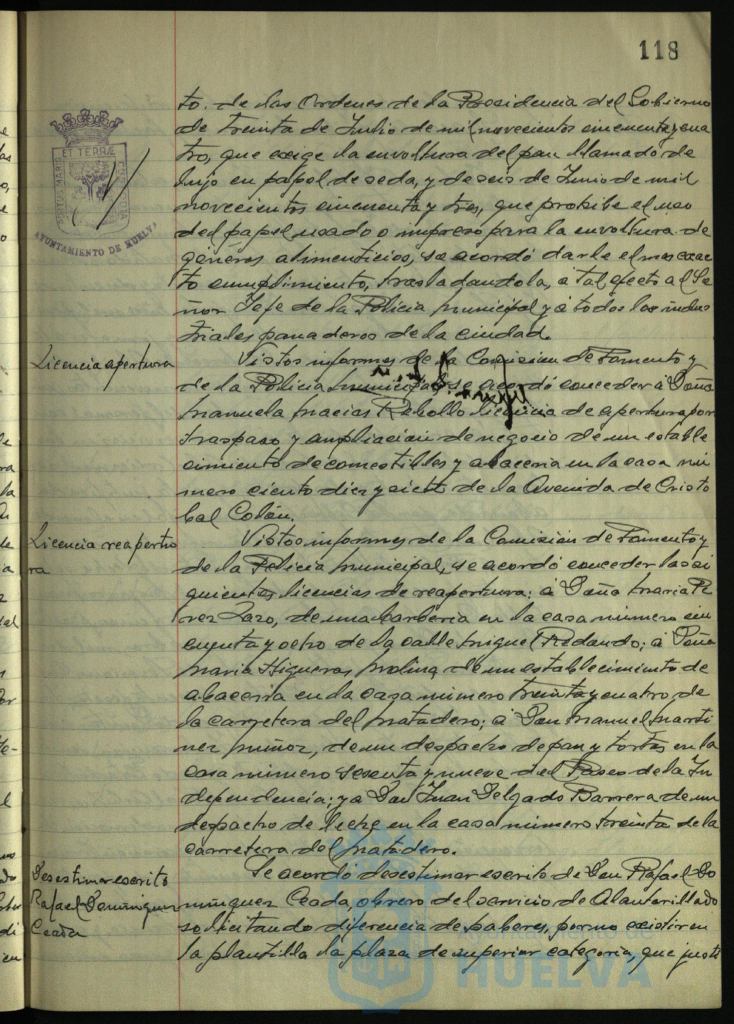 118
to. de las Ordenes de la Presidencia del Gobierno
de treinta de Julio de mil novecientos cincuenta y cua
tro, que exige la envoltura del pan llamado de
lujo en papel de seda, y de seis de Junio de mil
novecientos cincuenta y tres, que prohibe el uso
del papel usado o impreso para la envoltura de
géneros alimenticios, se acordó darle el mas exac
to cumplimiento, trasladandola, a tal efecto al Se
ñor Jefe de la Policia Municipal y a todos los indus
triales panaderos de la ciudad.
Licencia apertura
Vistos informes de la Comision de Fomento y
de la Policia Municipal, se acordó conceder a Doña
Manuela Macias Rebollo licencia de apertura por
traspaso y ampliacion de negocio de un estable
cimiento de comestibles y abaceria en la casa nú
mero ciento diez y siete de la Avenida de Cristo
bal Colón.
Licencia reapertu
ra
Vistos informes de la Comisión de Fomento y
de la Policia Municipal, se acordó conceder las si
guientes licencias de reapertura: a Doña Maria Pe
rez Lazo, de una barberia en la casa número cin
cuenta y ocho de la calle Miguel Redondo; a Doña
Maria Higueras Molina de un establecimiento de
abaceria en la casa número treinta y cuatro de
la carretera del Matadero; a Don Manuel Marti
nez Muñoz, de un despacho de pan y tortas en la
casa número sesenta y nueve del Paseo de la In
dependencia; y a Don Juan Delgado Barrera de un
despacho de leche en la casa número treinta de la
carretera del Matadero.
Desestimar escrito
Rafael Dominguez
Ceada
Se acordó desestimar escrito de Don Rafael Do
minguez Ceada, obrero del servicio de Alcantarillado
solicitando diferencia de haberes, por no existir en
la plantilla la plaza de superior categoria, que justi
AYUNTAMIENTO DE HUELVA
HUELVA